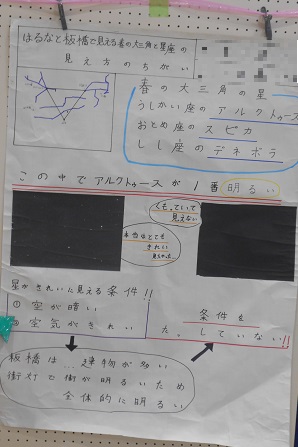 はるなと板橋で見える春の大三角と星座の
見え方のちがい
春の大三角の星
うしかい座のアルクトゥース
おとめ座のスピカ
しし座のデネボラ
この中でアルクトゥースが1番明るい
ていて
見えない
本当はとても
きれい
星がきれいに見える条件!!
①空が暗い
②空気がきれい
条件を
た。していない!!
板橋は…建物が多い
街灯で街が明るいため
全体的に明るい